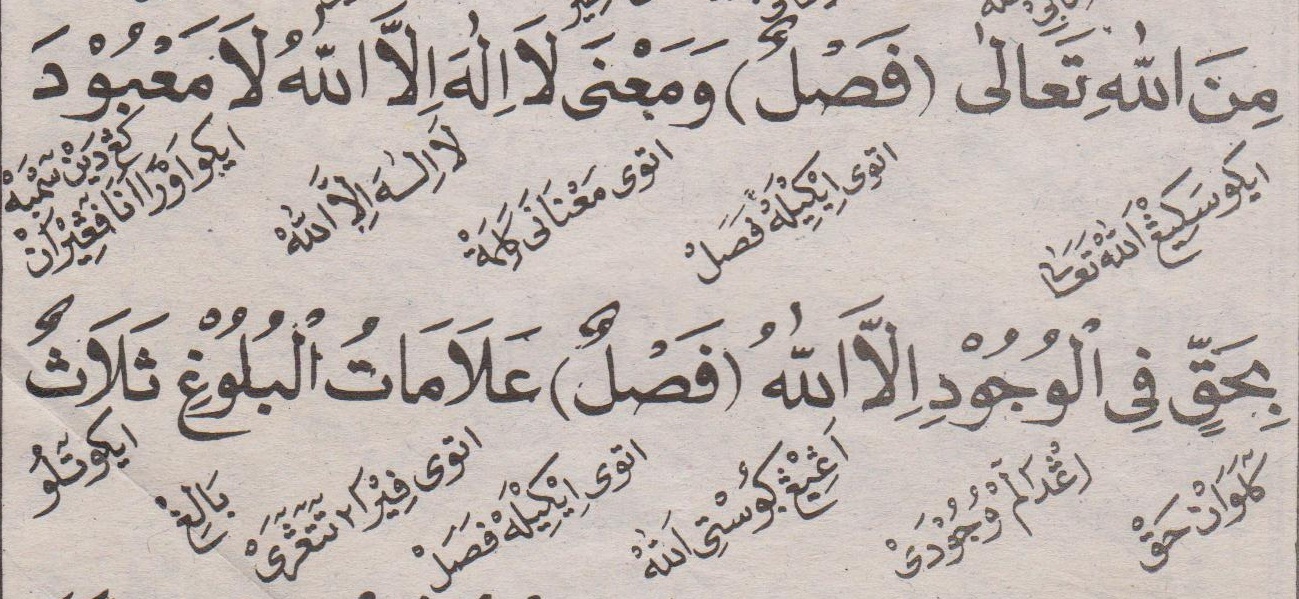 مِنَ اللّٰهِ تَعَالٰى (فَصْلٌ) وَمَعْنَى لَا اِلٰهَ اِلَّا اللّٰهُ لَا مَعْبُوْدَ
ايكو سَكِيڠْ اَللّٰهْ تَعَالٰى اتوى اِيْكِيْلَهْ فَصَلْ اتوى مَعْنَانَى كَلِمَةْ لَا اِلٰهَ اِلَّا اللّٰهْ ايكو اَوْرَا اَنَا ڤَڠٓيْرَانْ كڠ دَيْنْ سٓمْبَهْ
بِحَقٍّ فِى الْوُجُوْدِ اِلَّا اللّٰهُ (فَصْلٌ) عَلَامَاتُ الْبُلُوْغِ ثَلَاثٌ
كَلَوَانْ حَقْ اِڠْدَالٓمْ وُجُوْدَىْ اَڠِيْڠْ كُوْسْتِى اَللّٰهْ اتوى اِيْكِيْلَهْ فَصَلْ اتوى ڤِيْرَا٢ تٓتٓڠْرَىْ بَالِغْ ايكو تٓلُو